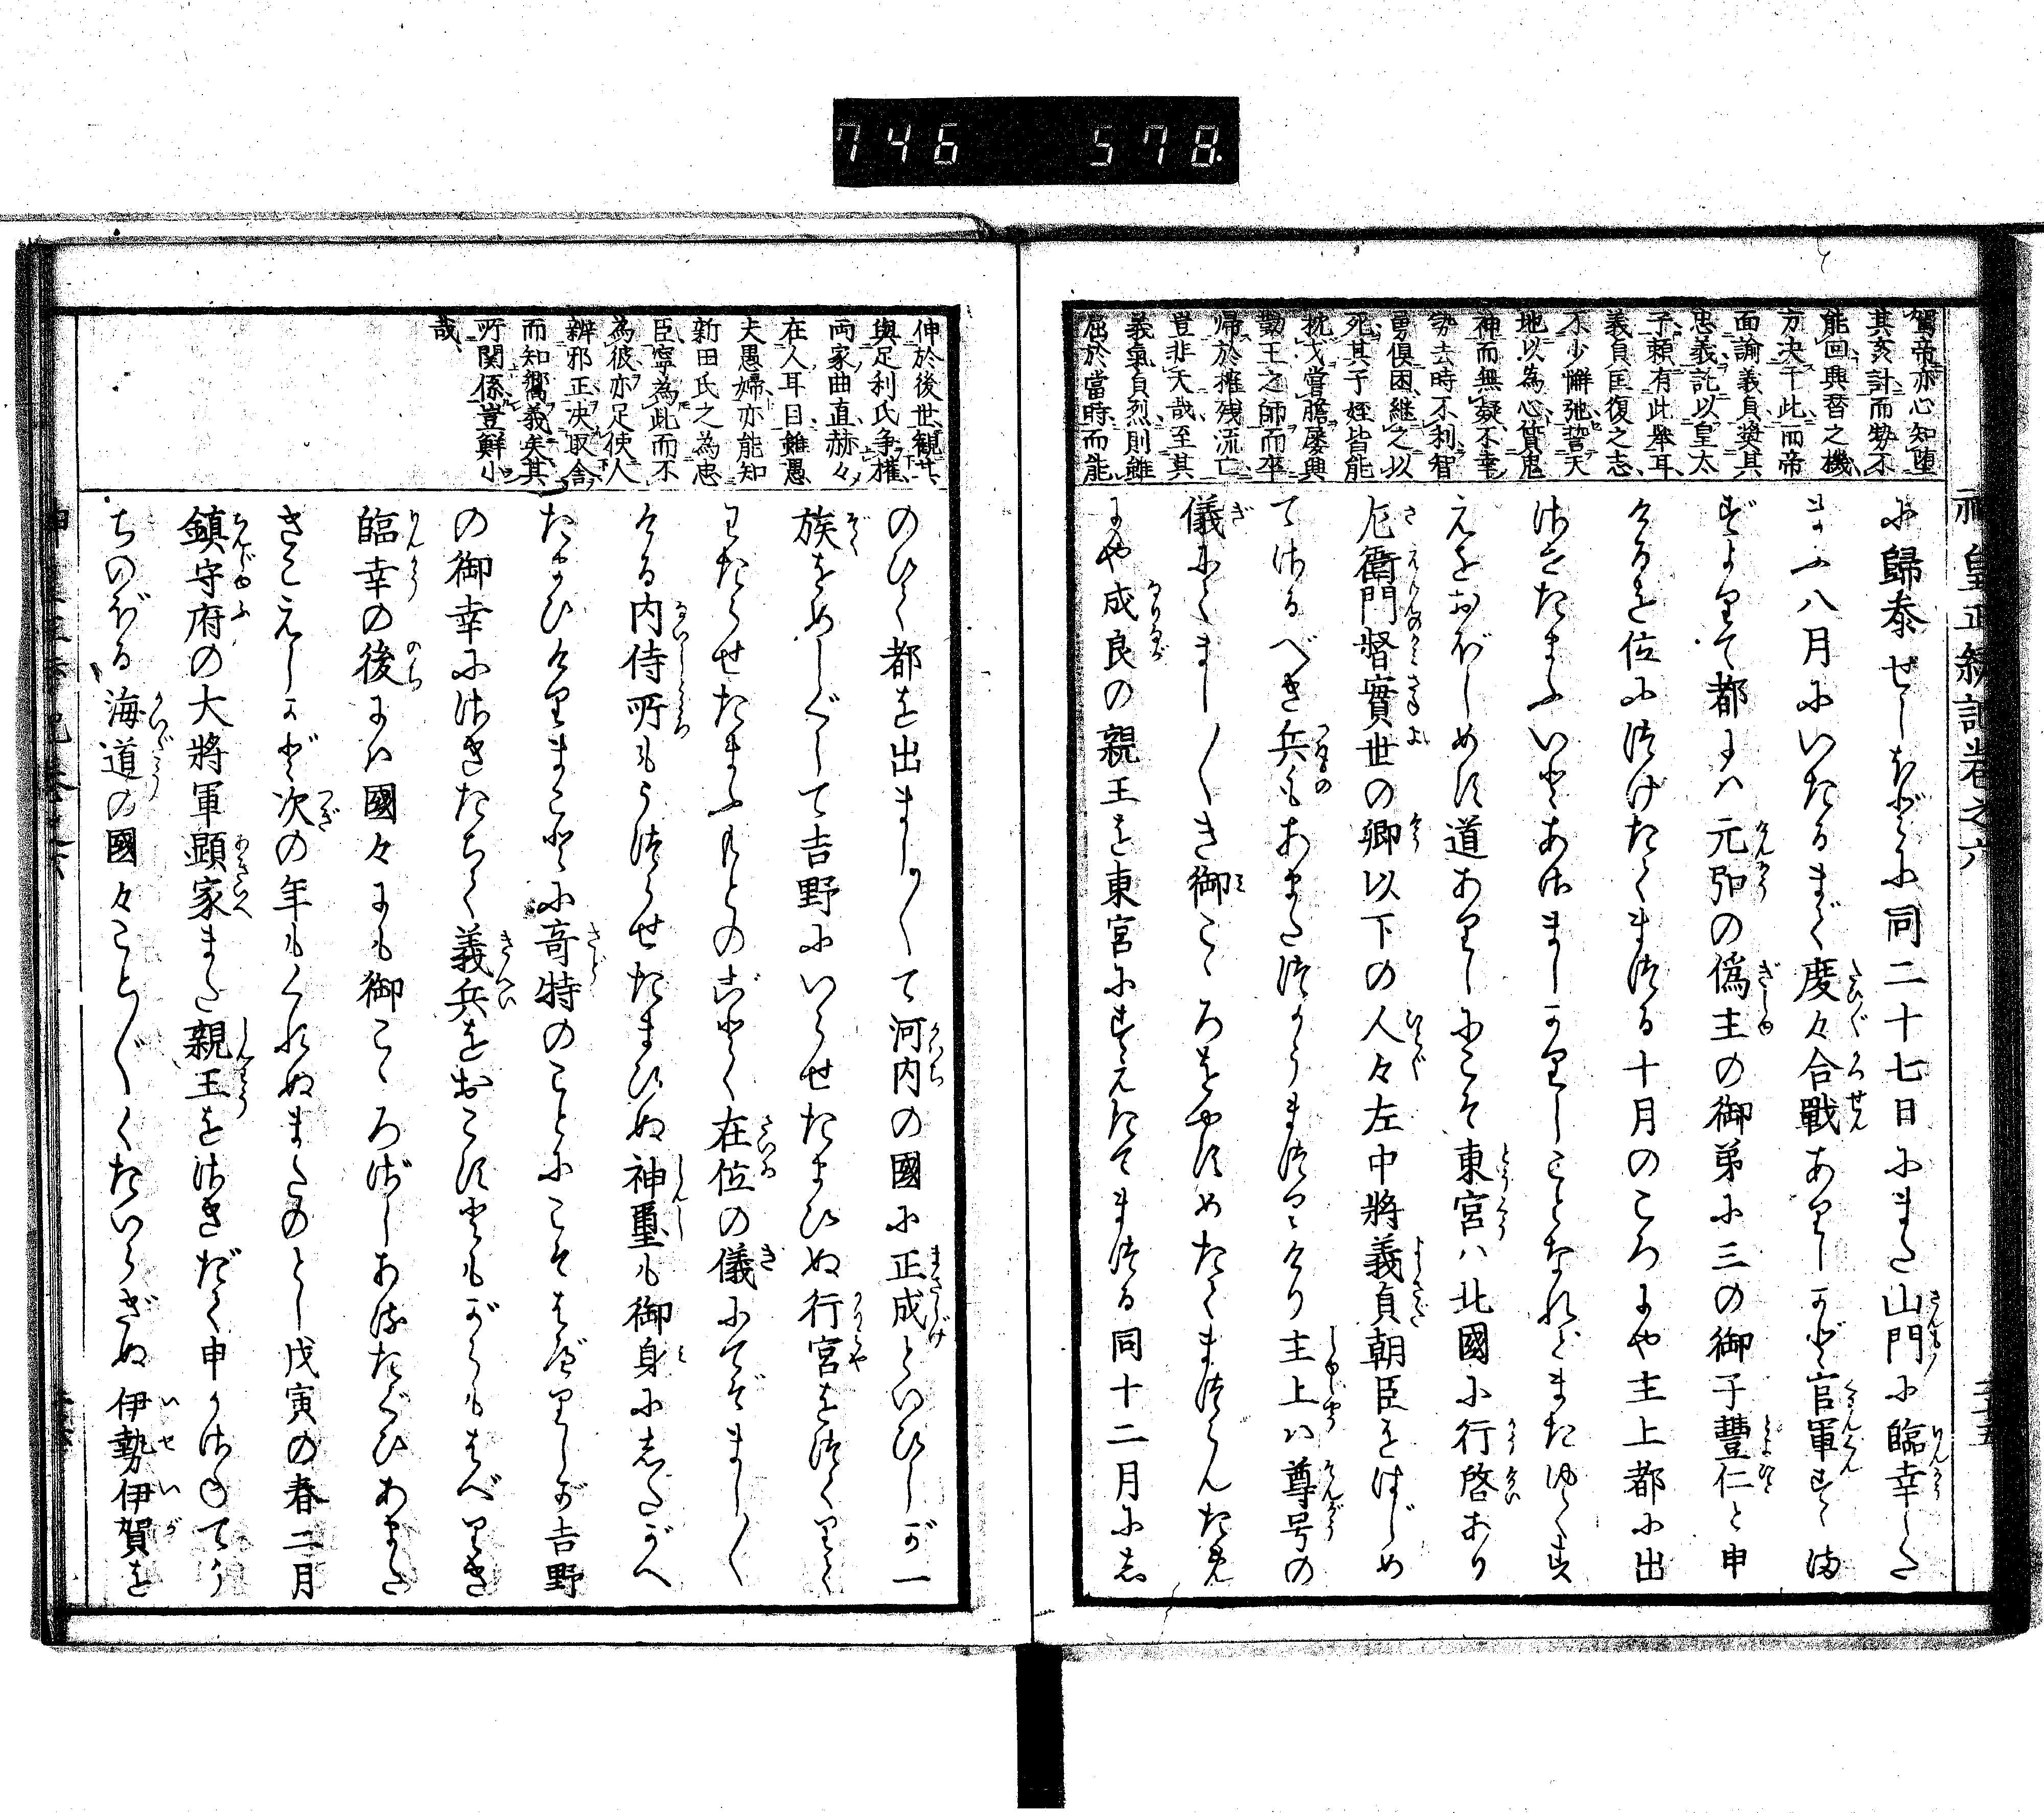 746 578.
神皇正統記卷之六
駕帝亦心知墮
其亥計而勢不
能回輿督之機
方决于此而帝
面諭義貞奬其
忠義託以皇太
子頼有此擧耳
義貞匡復之志
不少懈弛誓天
地以為心質鬼
神而無疑不幸
勢去時不利智
勇俱困繼之以
死其子姪皆能
枕戈嘗膽屡興
勤王之師而卒
帰於摧残流亡
豈非天哉至其
義氣貞烈則雖
屈於當時而能
に歸泰せしほどに同二十七日にまた山門に臨幸した
まふ八月にいたるまで度々合戰ありしかど官軍すゝま
ずよりて都には元弘の偽主の御弟に三の御子豐仁と申
けるを位につけたてまつる十月のころにや主上都に出
させたまふいとあさましかりしことなれどまたゆくす
えをおぼしめす道ありしにこそ東宮は北國に行啓あり
左衞門督實世の卿以下の人々左中將義貞朝臣をはじめ
てさるべき兵もあまたつかうまつりけり主上は尊号の
儀にてまし〳〵き御こゝろをやすめたてまつらんため
にや成良の親王を東宮にすえたてまつる同十二月にし
伸於後世觀其
與足利氏争權
両家曲直赫々
在人耳目雖愚
夫愚婦亦能知
新田氏之為忠
臣寧為此而不
為彼亦足使人
辨邪正决取舍
而知嚮義矣其
所関係豈鮮小
哉
のびて都を出まし〳〵て河内の國に正成といひしが一
族をめしぐして吉野にいらせたまひぬ行宮をつくりて
わたらせたまふもとのごとく在位の儀にてぞまし〳〵
ける内侍所もうつらせたまひぬ神璽も御身にしたがへ
たまひけりまことに奇特のことにこそはべりしが吉野
の御幸にさきたちて義兵をおこすともがらもはべりき
臨幸の後には國々にも御こゝろざしあるたぐひあまた
きこえしかど次の年もくれぬまたのとし戊寅の春二月
鎮守府の大將軍顕家また親王をさきだて申かさねてう
ちのぼる海道の國々こと〴〵くたいらぎぬ伊勢伊賀を